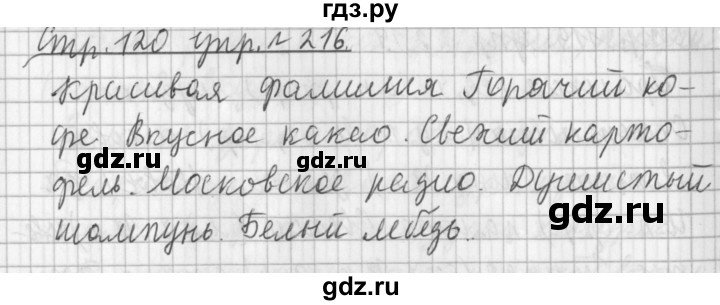 гдз.ру
Стр. 120 упр. № 216.
Красивая фамилия Горячий ко-
фе Вкусное какао. Свежий карто-
gdz.ru gdz.ru
фель. Московское радио. Душистый
gdz.ru
шампунь. Белый лебедь.